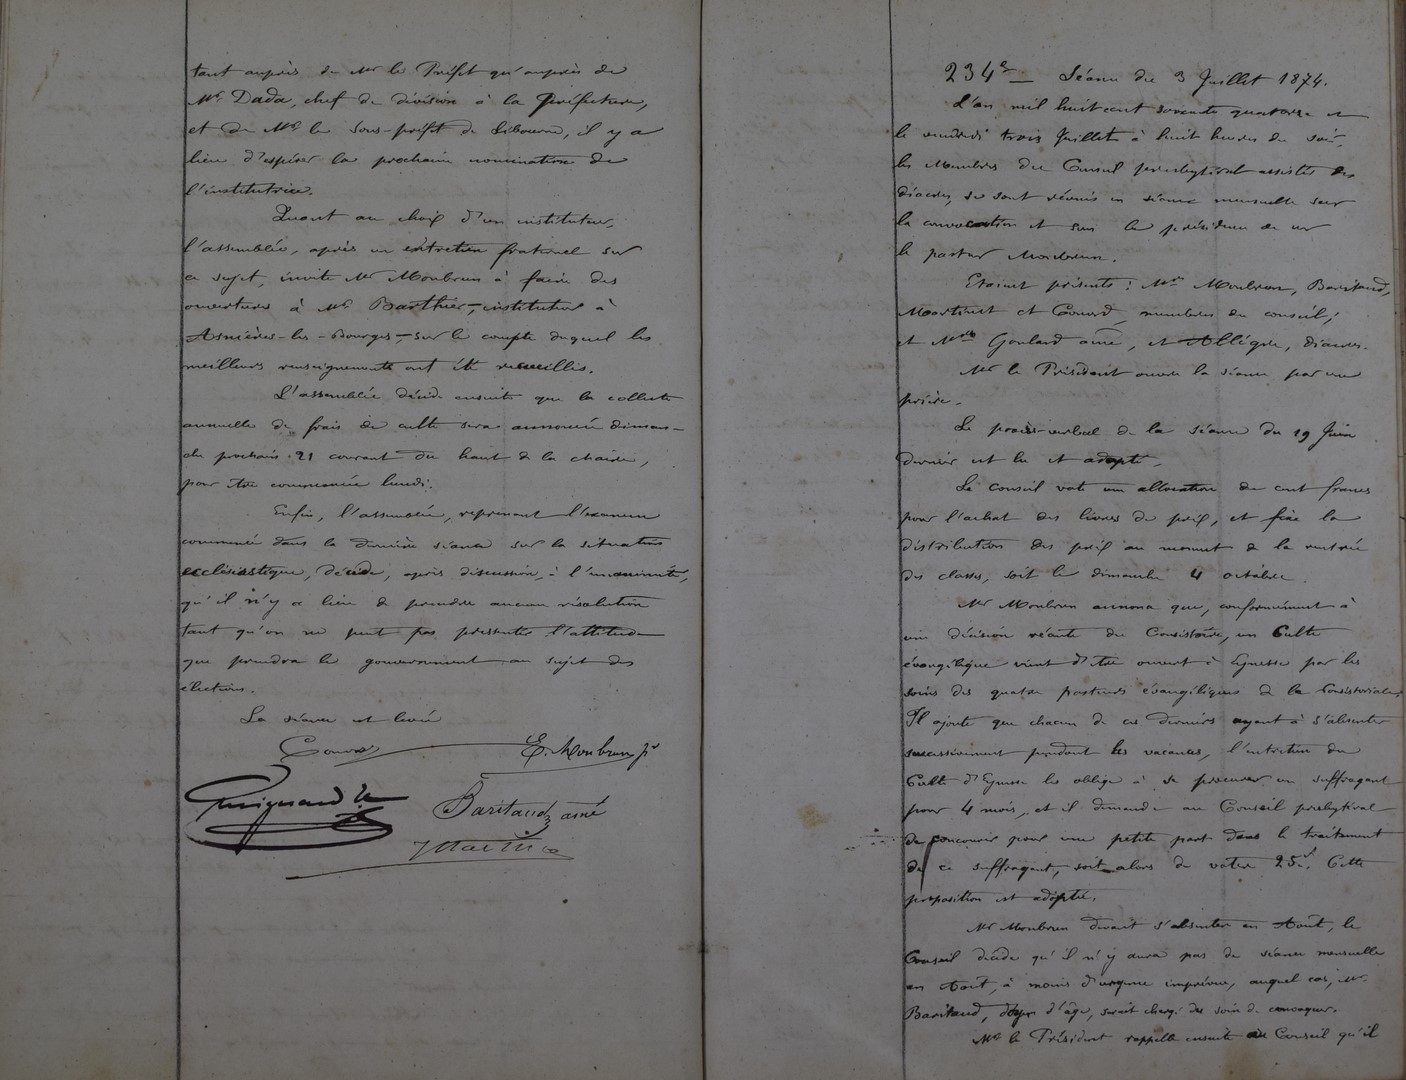 tant auprès de Mr le Préfet qu'auprès de
Mr Dada, chef de division à la préfecture,
et de Mr le Sous-préfet de Libourne, il y a
lieu d'espérer la prochaine nomination de
l'institutrice.
Quant au choix d'un instituteur,
l'assemblée, après un entretien fraternel sur
ce sujet, invite Mr Monbrun à faire des
ouvertures à Mr Barthier, instituteur à
Asnières-les-Bourges, sur le compte duquel les
meilleurs renseignements ont été recueillis.
L'assemblée décide ensuite que la collecte
annuelle de frais de culte sera annoncée diman-
che prochain 21 courant du haut de la chaire,
pour être commencée lundi.
Enfin, l'assemblée, reprenant l'examen
commencé dans la dernière séance sur la situation
ecclésiastique, décide, après discussion, à l'unanimité,
qu'il n'y a lieu de prendre aucune résolution
tant qu'on ne peut pas pressentir l'attitude
que prendra le gouvernement au sujet des
élections.
La séance est levée
E. Monbrun pr
Guignard
Baritaud aîné
234e — Séance du 3 Juillet 1874.
L'an mil huit cent soixante quatorze et
le vendredi trois Juillet à huit heures du soir,
les Membres du Conseil presbytéral assistés des
diacres, se sont réunis en séance mensuelle sur
la convocation et sous la présidence de mr
le pasteur Monbrun.
Etaient présents : Mrs Monbrun, Baritaud,
Martinet et Conord, membres du conseil;
et Mrs Goulard aîné, et Allègre, diacres.
Mr le Président ouvre la séance par une
prière.
Le procès-verbal de la séance du 19 Juin
dernier est lu et adopté.
Le conseil vote une allocation de cent francs
pour l'achat des livres de prix, et fixe la
distribution des prix au moment de la rentrée
des classes, soit le dimanche 4 octobre.
Mr Monbrun annonce que, conformément à
une décision récente du Consistoire, un Culte
évangélique vient d'être ouvert à Eynesse par les
soins des quatre pasteurs évangéliques de la Consistoriale.
Il ajoute que chacun de ces derniers ayant à s'absenter
successivement pendant les vacances, l'entretien du
Culte d'Eynesse les oblige à se procurer un suffragant
pour 4 mois, et il demande au Conseil presbytéral
de concourir pour une petite part dans le traitement
de ce suffragant, soit alors de voter 25f. Cette
proposition est adoptée.
Mr Monbrun devant s'absenter en Août, le
Conseil décide qu'il n'y aura pas de séance mensuelle
en Août, à moins d'urgence imprévue, auquel cas, Mr
Baritaud, doyen d'âge, serait chargé du soin de convoquer.
Mr le Président rappelle ensuite au Conseil qu'il